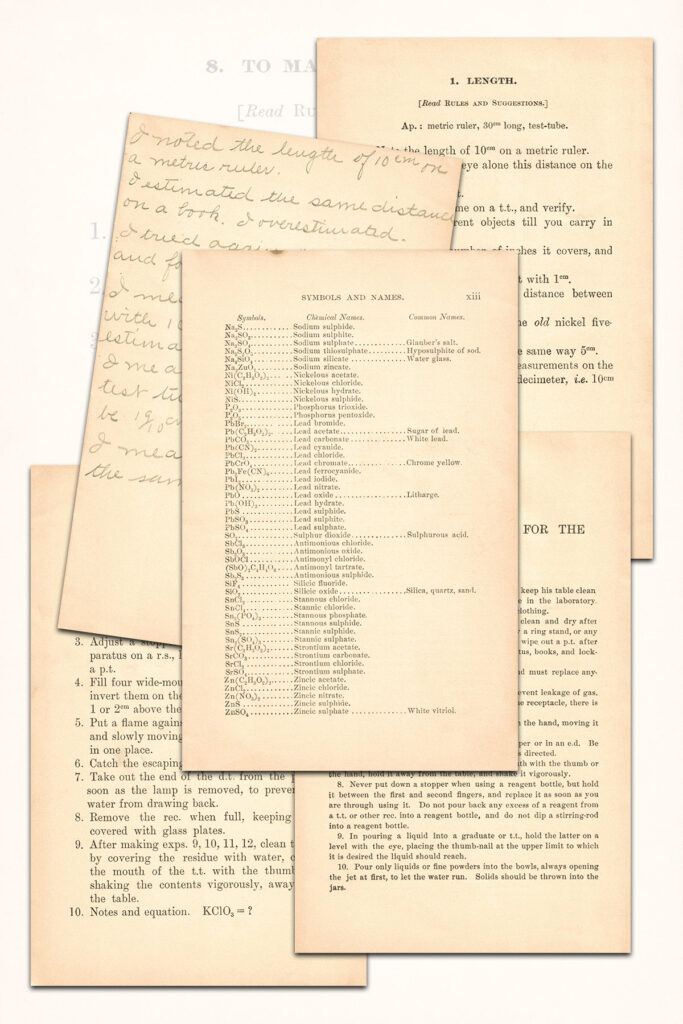 8. TO MA
[Read RU
1.
2
1. LENGTH.
[Read RULES AND SUGGESTIONS.]
Ap.: metric ruler, 30cm long, test-tube.
the length of 10cm on a metric ruler.
eye alone this distance on the
me on a t.t., and verify.
rent objects till you carry in
number of inches it covers, and
t with 1cm.
distance between
he old nickel five-
e same way 5cm.
easurements on the
decimeter, i.e. 10cm
I noted the length of 10cm on
a metric ruler.
I estimated the same distance
on a book. I overestimated.
I tried again
and fo
I me
with 1
estima
I mea
test tu
be 1 9/10 cm
I mea
the sam
SYMBOLS AND NAMES. xiii
Symbols. Chemical Names. Common Names.
Na₂S............Sodium sulphide.
Na₂SO₃............Sodium sulphite.
Na₂SO₄............Sodium sulphate............Glauber's salt.
Na₂S₂O₃............Sodium thiosulphate............Hyposulphite of sod.
Na₄SiO₄............Sodium silicate............Water glass.
Na₂ZnO₂............Sodium zincate.
Ni(C₂H₃O₂)₂............Nickelous acetate.
NiCl₂............Nickelous chloride.
Ni(OH)₂............Nickelous hydrate.
NiS............Nickelous sulphide.
P₂O₃............Phosphorus trioxide.
P₂O₅............Phosphorus pentoxide.
PbBr₂............Lead bromide.
Pb(C₂H₃O₂)₂............Lead acetate............Sugar of lead.
PbCO₃............Lead carbonate............White lead.
Pb(CN)₂............Lead cyanide.
PbCl₂............Lead chloride.
PbCrO₄............Lead chromate............Chrome yellow.
Pb₂Fe(CN)₆............Lead ferrocyanide.
PbI₂............Lead iodide.
Pb(NO₃)₂............Lead nitrate.
PbO............Lead oxide............Litharge.
Pb(OH)₂............Lead hydrate.
PbS............Lead sulphide.
PbSO₃............Lead sulphite.
PbSO₄............Lead sulphate.
SO₂............Sulphur dioxide............Sulphurous acid.
SbCl₃............Antimonious chloride.
Sb₂O₃............Antimonious oxide.
SbOCl............Antimonyl chloride.
(SbO)₂C₄H₄O₆............Antimonyl tartrate.
Sb₂S₃............Antimonious sulphide.
SiF₄............Silicic fluoride.
SiO₂............Silicic oxide............Silica, quartz, sand.
SnCl₂............Stannous chloride.
SnCl₄............Stannic chloride.
Sn₃(PO₄)₂............Stannous phosphate.
SnS............Stannous sulphide.
SnS₂............Stannic sulphide.
Sn(SO₄)₂............Stannic sulphate.
Sr(C₂H₃O₂)₂............Strontium acetate.
SrCO₃............Strontium carbonate.
SrCl₂............Strontium chloride.
SrSO₄............Strontium sulphate.
Zn(C₂H₃O₂)₂............Zincic acetate.
ZnCl₂............Zincic chloride.
Zn(NO₃)₂............Zincic nitrate.
ZnS............Zincic sulphide.
ZnSO₄............Zincic sulphate............White vitriol.
FOR THE
keep his table clean
e in the laboratory.
lothing.
clean and dry after
r a ring stand, or any
wipe out a p.t. after
tus, books, and lock-
d must replace any-
event leakage of gas.
e receptacle, there is
n the hand, moving it
per or in an e.d. Be
s directed.
uth with the thumb or
the hand, hold it away from the table, and shake it vigorously.
8. Never put down a stopper when using a reagent bottle, but hold
it between the first and second fingers, and replace it as soon as you
are through using it. Do not pour back any excess of a reagent from
a t.t. or other rec. into a reagent bottle, and do not dip a stirring-rod
into a reagent bottle.
9. In pouring a liquid into a graduate or t.t., hold the latter on a
level with the eye, placing the thumb-nail at the upper limit to which
it is desired the liquid should reach.
10. Pour only liquids or fine powders into the bowls, always opening
the jet at first, to let the water run. Solids should be thrown into the
jars.
3. Adjust a stopp
paratus on a r.s., 
a p.t.
4. Fill four wide-mou
invert them on the
1 or 2cm above the
5. Put a flame again
and slowly moving
in one place.
6. Catch the escaping
7. Take out the end of the d.t. from the
soon as the lamp is removed, to preve
water from drawing back.
8. Remove the rec. when full, keeping
covered with glass plates.
9. After making exps. 9, 10, 11, 12, clean t
by covering the residue with water, c
the mouth of the t.t. with the thumb
shaking the contents vigorously, away
the table.
10. Notes and equation. KClO₃ = ?